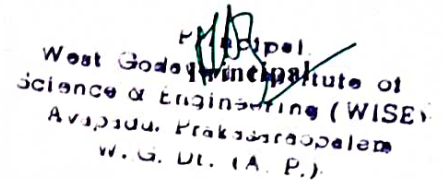 Principal
West Godavari Institute of
Principal
Science & Engineering (WISE)
Avapadu, Prakasaraopalem
W. G. Dt. (A. P.)